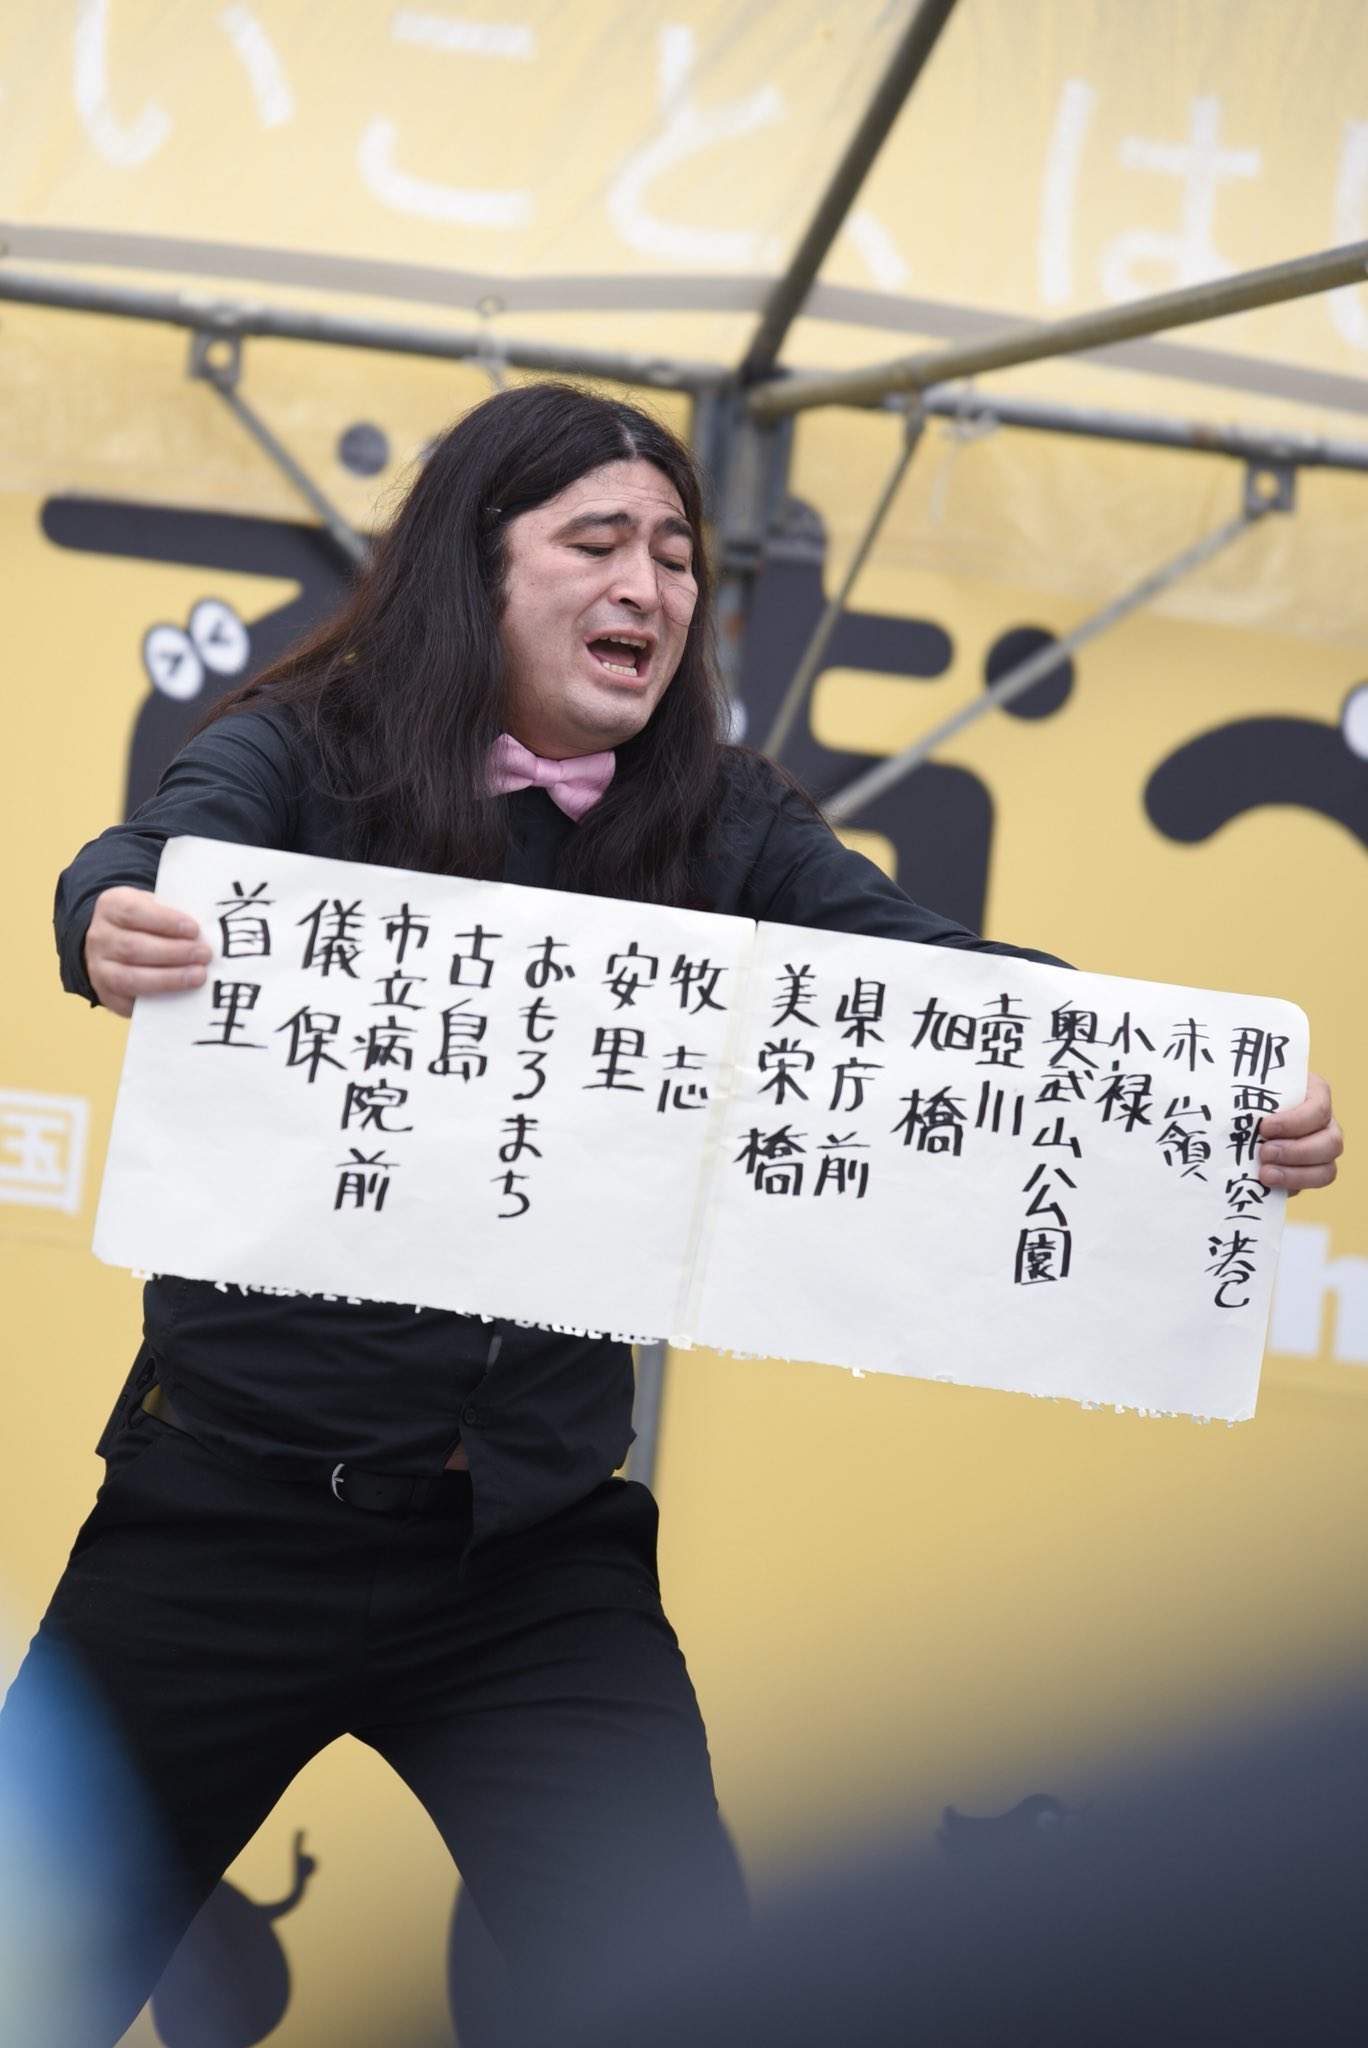 いこと、は
那覇空港
赤嶺
小禄
奥武山公園
壺川
旭橋
県庁前
美栄橋
牧志
安里
おもろまち
古島
市立病院前
儀保
首里
国
h